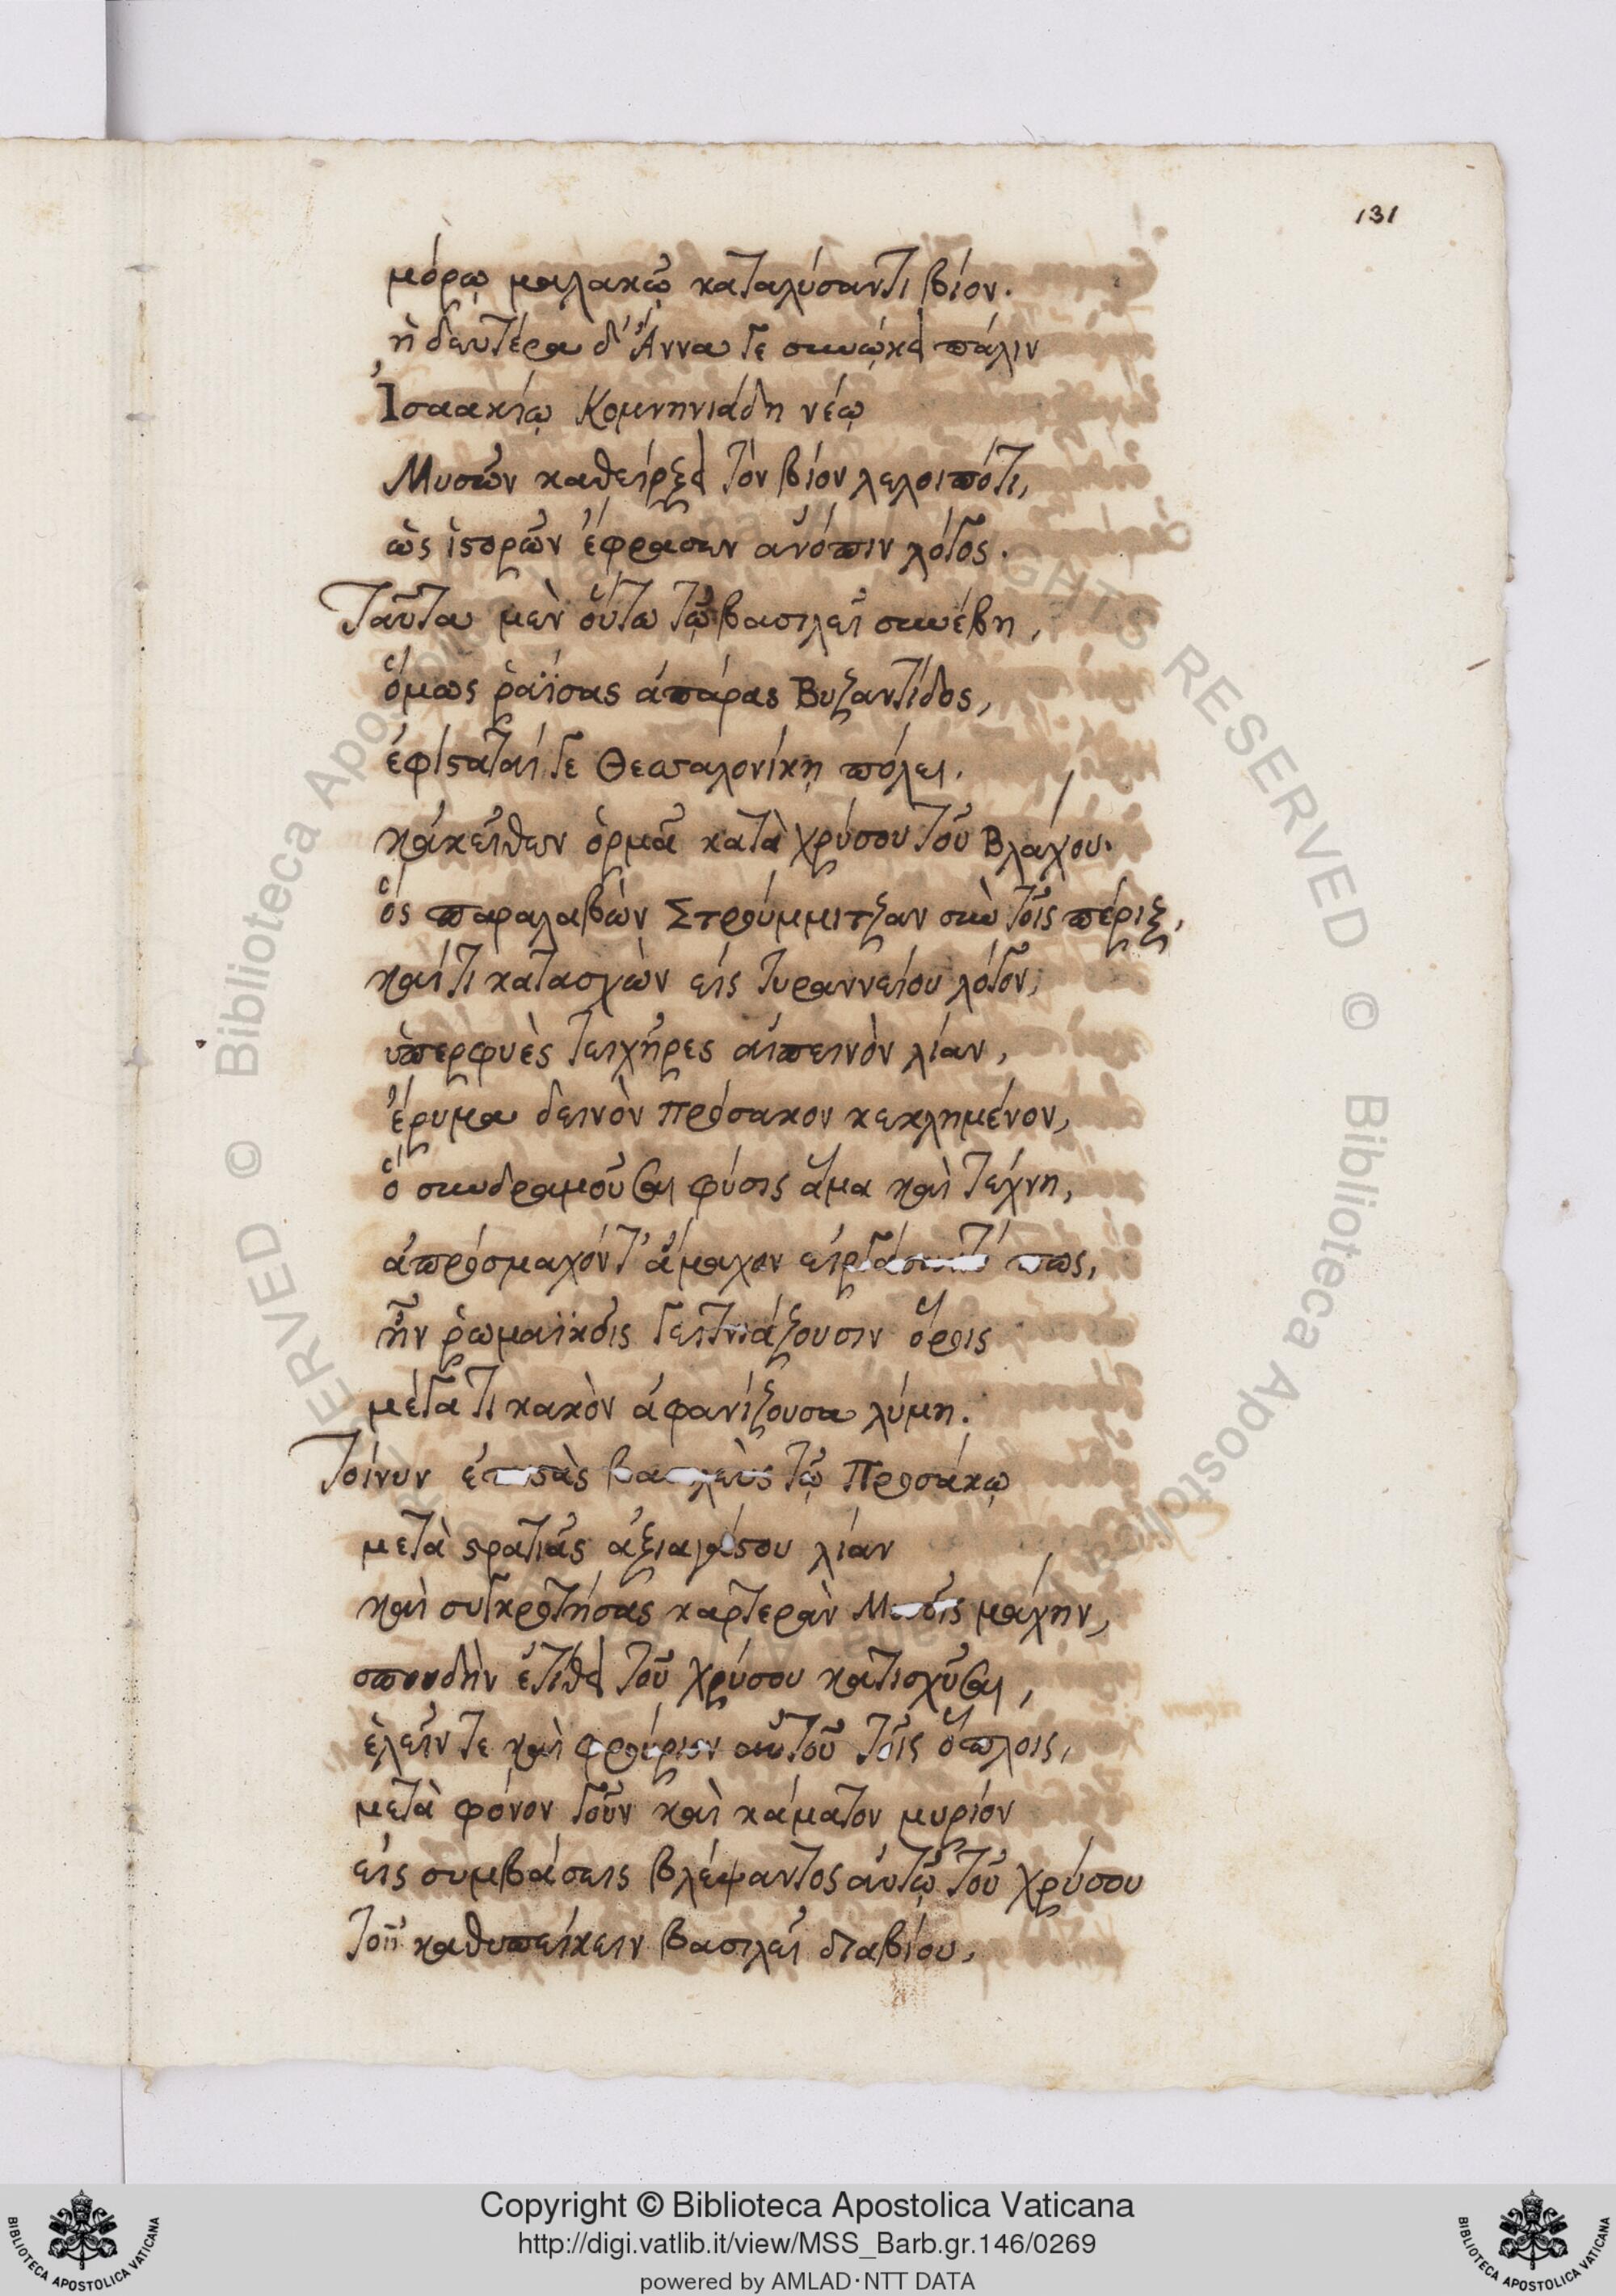 131
μόρῳ μαλακῷ καταλύσαντι βίον.
ἡ δευτέρα δ' Ἄννα γε συνῴκει πάλιν
Ἰσαακίῳ Κομνηνιάδῃ νέῳ
Μυσῶν καθείρξει τὸν βίον λελοιπότι,
ὡς ἱστορῶν ἔφρασεν ἀνόπιν λόγος.
Ταῦτα μὲν οὕτω τῷ βασιλεῖ συνέβη,
ὅμως ῥαΐσας ἀπάρας Βυζαντίδος,
ἐφίσταταί γε Θεσσαλονίκῃ πόλει.
κἀκεῖθεν ὁρμᾷ κατὰ χρύσου τοῦ Βλάχου.
ὃς παραλαβὼν Στρούμμιτζαν σὺν τοῖς πέριξ,
καί τι κατασχὼν εἰς τυραννείου λόγον,
ὑπερφυὲς τειχῆρες αἰπεινὸν λίαν,
ἔρυμα δεινὸν Πρόσακον κεκλημένον,
ὃ συνδραμοῦσαι φύσις ἅμα καὶ τέχνη,
ἀπρόσμαχόν τ' ἄμαχον πως,
ἦν ῥωμαϊκοῖς γειτνιάζουσιν ὅροις
μέγα τι κακὸν ἀφανίζουσα λύμη.
Τοίνυν βασιλεὺς τῷ Προσάκῳ
μετὰ στρατιᾶς ἀξιαγάστου λίαν
καὶ συγκροτήσας καρτερὰν Μυσοῖς μάχην,
σπουδὴν ἐτίθει τοῦ χρύσου κατισχῦσαι,
ἑλεῖν τε καὶ φρούριον αὐτοῦ τοῖς ὅπλοις,
μετὰ φόνον γοῦν καὶ κάματον μυρίον
εἰς συμβάσεις βλέψαντος αὐτῷ τοῦ χρύσου
τοῦ καθυπείκειν βασιλεῖ διαβίου,
Copyright © Biblioteca Apostolica Vaticana
http://digi.vatlib.it/view/MSS_Barb.gr.146/0269
powered by AMLAD·NTT DATA
BIBLIOTECA APOSTOLICA VATICANA
BIBLIOTECA APOSTOLICA VATICANA